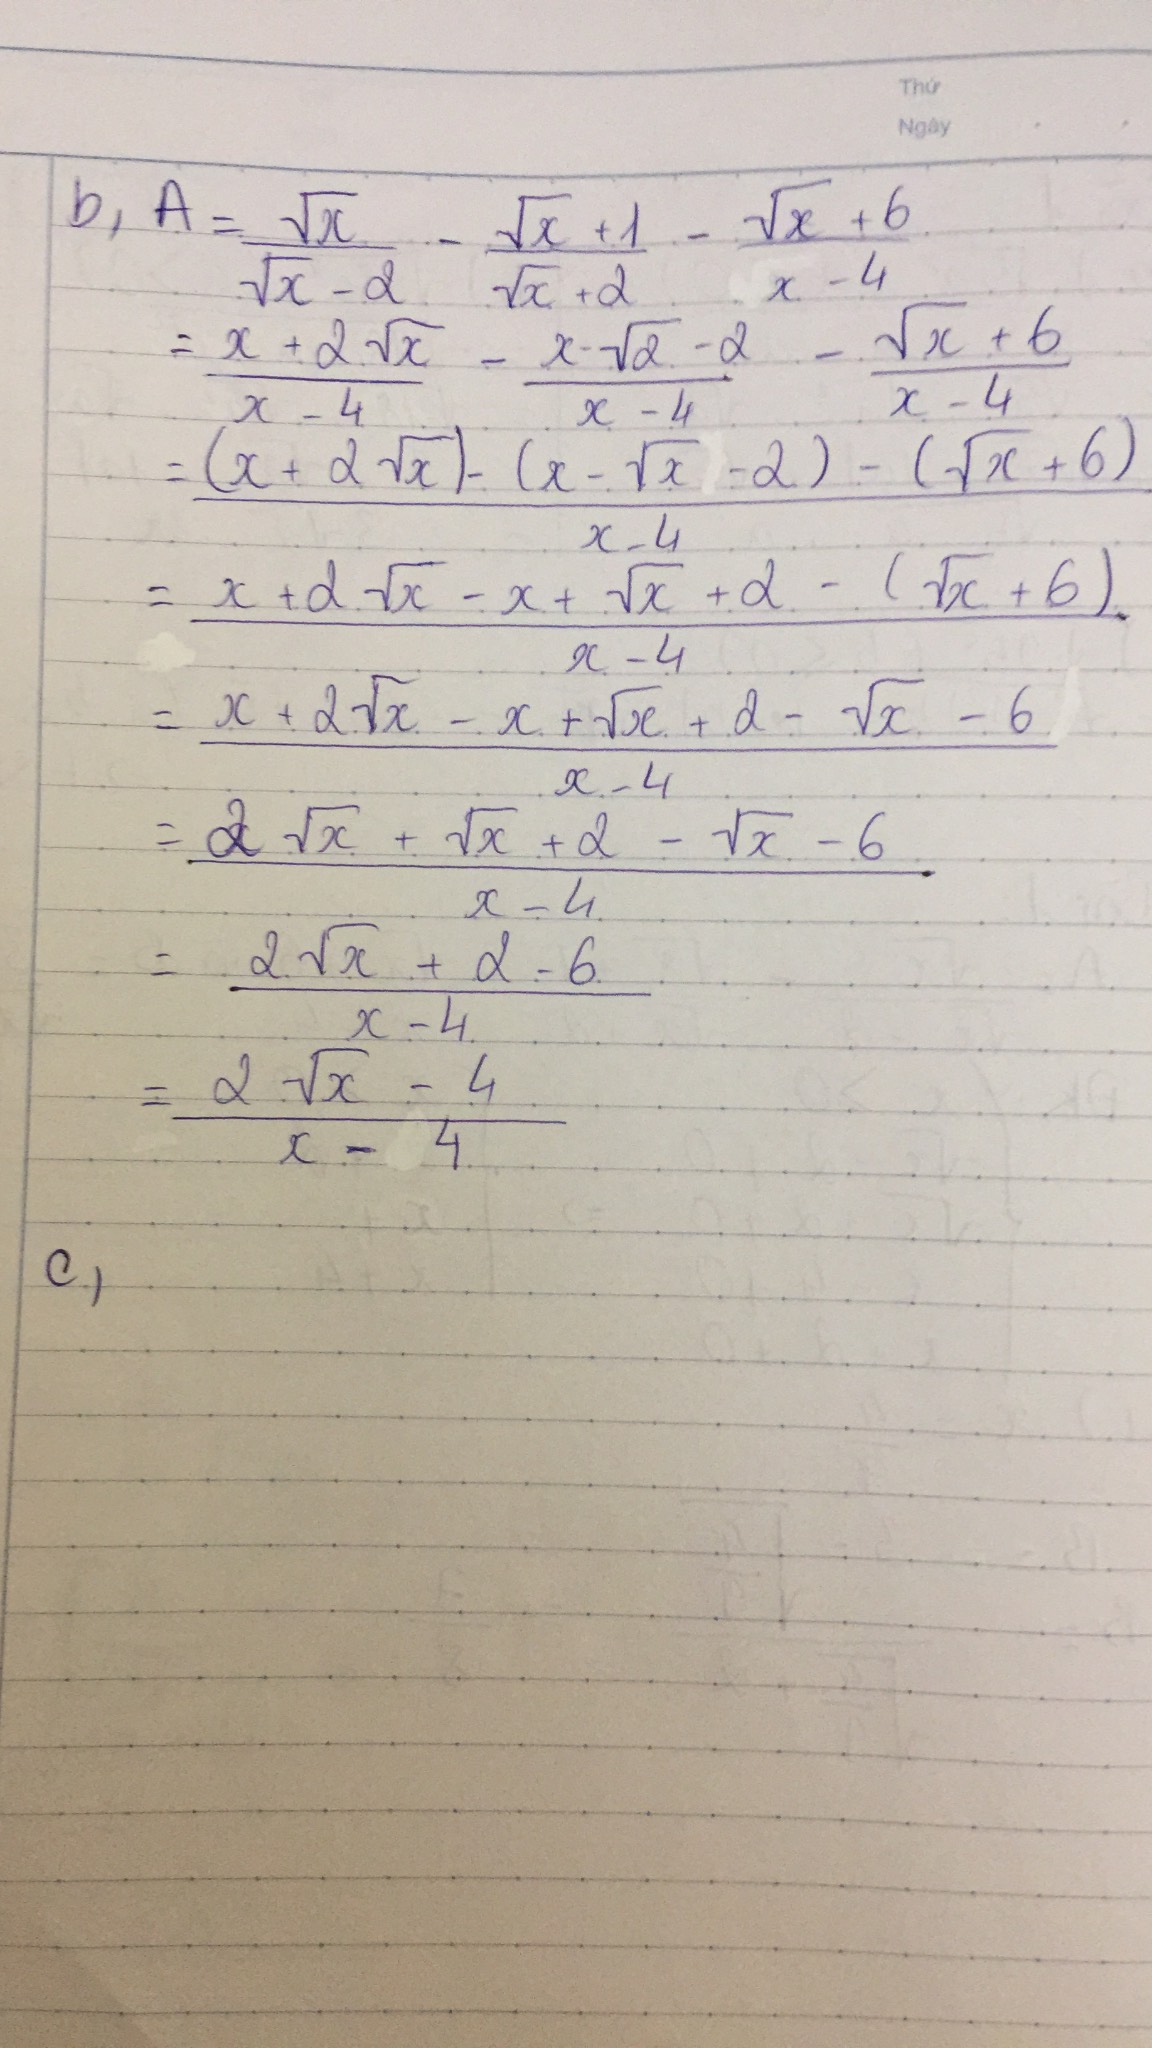 Thứ
Ngày
b, A = √x / (√x - 2) - (√x + 1) / (√x + 2) - (√x + 6) / (x - 4)
= (x + 2√x) / (x - 4) - (x - √2 - 2) / (x - 4) - (√x + 6) / (x - 4)
= ((x + 2√x) - (x - √x - 2) - (√x + 6)) / (x - 4)
= (x + 2√x - x + √x + 2 - (√x + 6)) / (x - 4)
= (x + 2√x - x + √x + 2 - √x - 6) / (x - 4)
= (2√x + √x + 2 - √x - 6) / (x - 4)
= (2√x + 2 - 6) / (x - 4)
= (2√x - 4) / (x - 4)
c,